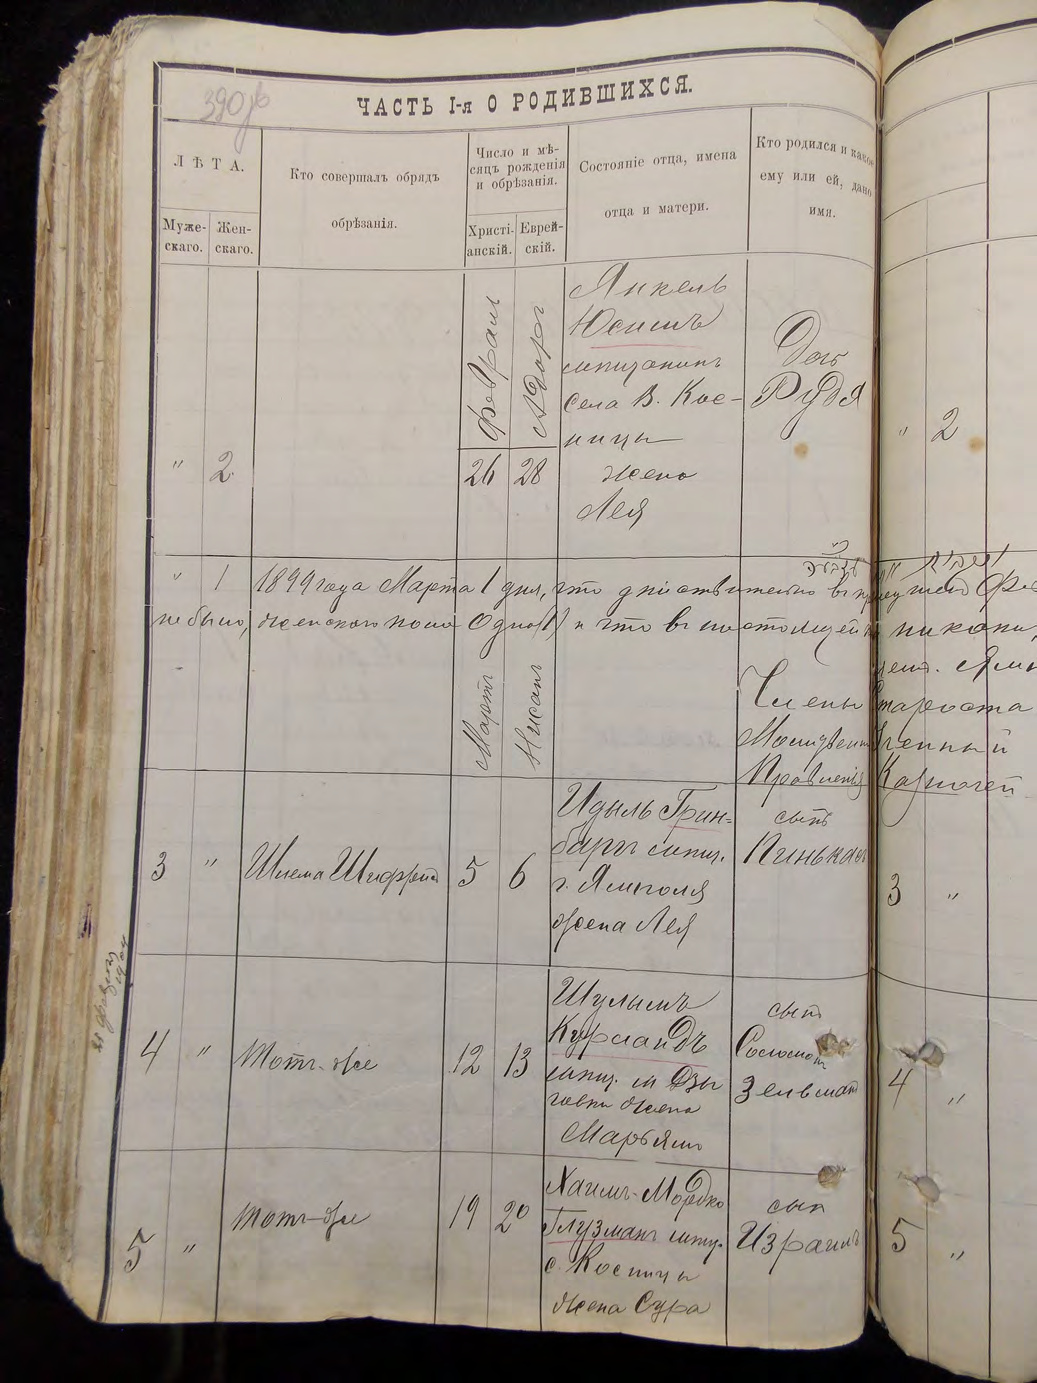 390
ЧАСТЬ I-я О РОДИВШИХСЯ.
ЛѢТА.
Муже-
скаго.
Жен-
скаго.
Кто совершалъ обрядъ
обрѣзанія.
Число и мѣ-
сяцъ рожденія
и обрѣзанія.
Христі-
анскій.
Еврей-
скій.
Состояніе отца, имена
отца и матери.
Кто родился и како-
ему или ей, дано
имя.
" 2
Февраль
26
Адоръ
28
Янкель
Юсимъ
мещанинъ
села В. Кос-
ницы
жена
Лея
Дочь
Рудя
" 2
" 1 1899 года Марта 1 дня, что дѣйствительно въ
не было, женского пола одно (1) и что въ настоящей никакихъ
Члены Староста
Правленія
Мартъ
Нисанъ
3 "
Шлема
5
6
Идыль Грин-
баргъ мещ.
г. Ямполя
жена Лея
сынъ
Пинькасъ
3 "
4 "
Тотъ-же
12
13
Шулымъ
Курландъ
мещ. м Дзы
говки жена
Марьямъ
сынъ
Соломонъ
Зельманъ
4 "
5 "
Тотъ-же
19
20
Хаимъ-Мордко
Глузманъ мещ.
с. Косницы
жена Сура
сын
Израиль
5 "